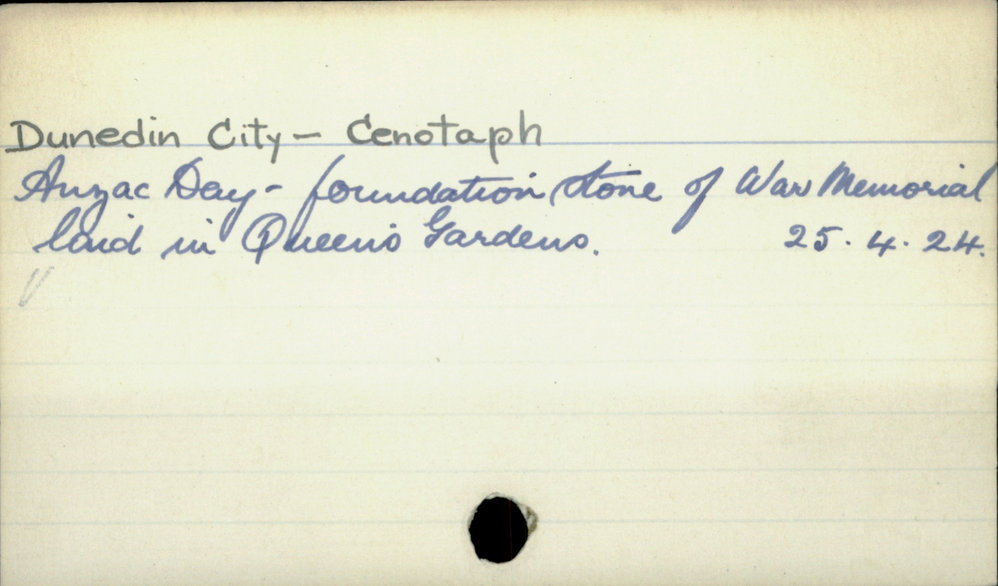 Dunedin City - Cenotaph
Anzac Day - foundation stone of War Memorial
laid in Queens Gardens. 25.4.24.